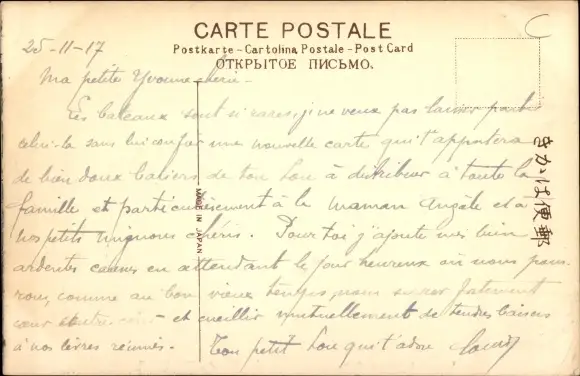 CARTE POSTALE
Postkarte - Cartolina Postale - Post Card
ОТКРЫТОЕ ПИСЬМО.
25-11-17
C
Ma petite Yvonne chérie -
Les bateaux sont si rares, je ne veux pas laisser partir
celui-là sans lui confier une nouvelle carte qui t'apportera
de bien doux baisers de ton Lou à distribuer à toute la
famille et particulièrement à la maman Angèle et à
nos petits mignons chéris. Pour toi j'ajoute mes bien
ardentes caresses en attendant le jour heureux où nous pour-
rons, comme au bon vieux temps, nous serrer
et cueillir mutuellement de tendres baisers
à nos lèvres réunies.
Ton petit Lou qui t'adore
MADE IN JAPAN
きかは便郵